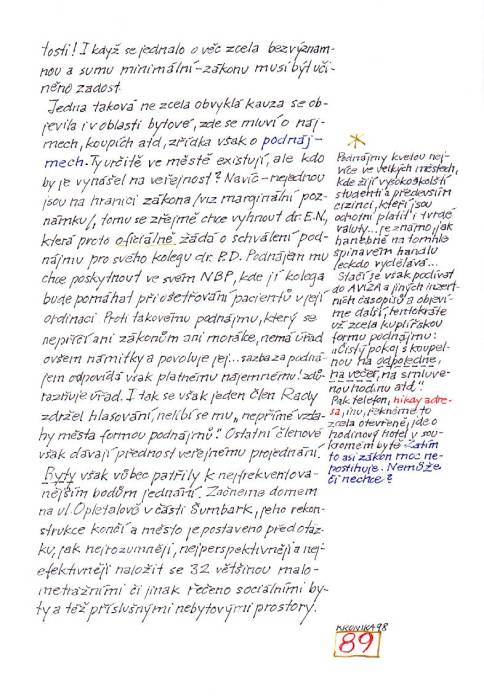 tosti! I když se jednalo o věc zcela bezvýznam-
nou a sumu minimální-zákonu musí být uči-
něno zadost.
Jedna taková ne zcela obvyklá kauza se ob-
jevila i v oblasti bytové, zde se mluví o náj-
mech, koupích atd, zřídka však o podnáj-
mech. Ty určitě ve městě existují, ale kdo
by je vynášel na veřejnost? Navíc-nejednou
jsou na hranici zákona /viz marginální poz-
námku/, tomu se zřejmě chce vyhnout dr. E.N,
která proto oficiálně žádá o schválení pod-
nájmu pro svého kolegu dr. P.D. Podnájem mu
chce poskytnout ve svém NBP, kde jí kolega
bude pomáhat při ošetřování pacientů v její
ordinaci. Proti takovému podnájmu, který se
nepříčí ani zákonům ani morálce, nemá úřad
ovšem námitky a povoluje jej... sazba za podná-
jem odpovídá však platnému nájemnému! zdů-
razňuje úřad. I tak se však jeden člen Rady
zdržel hlasování, nelíbí se mu „nepřímé vzta-
hy města formou podnájmů". Ostatní členové
však dávají přednost veřejnému projednání.
Byty však vůbec patřily k nejfrekventova-
nějším bodům jednání. Začneme domem
na ul. Opletalově v části Šumbark, jeho rekon-
strukce končí a město je postaveno před otáz-
ku, jak nejrozumněji, nejperspektivněji a nej-
efektivněji naložit se 32 většinou malo-
metrážními či jinak řečeno sociálními by-
ty a též příslušnými nebytovými prostory.
Podnájmy kvetou nej-
více ve velkých městech,
kde žijí vysokoškolští
studenti a především
cizinci, kteří jsou
ochotni platit i tvrdé
valuty... je známo, jak
hanebně na tomhle
špinavém handlu
leckdo vydělává...
Stačí se však podívat
do AVÍZA a jiných inzert-
ních časopisů a objeví-
me další, tentokráte
už zcela kuplířskou
formu podnájmu:
„čistý pokoj s koupel-
nou na odpoledne,
na večer, na smluve-
nou hodinu atd."
Pak telefon, nikdy adre-
sa, inu, řekněme to
zcela otevřeně, jde o
hodinový hotel v sou-
kromém bytě. Zatím
to asi zákon moc ne-
postihuje. Nemůže
či nechce?
KRONIKA 98
89